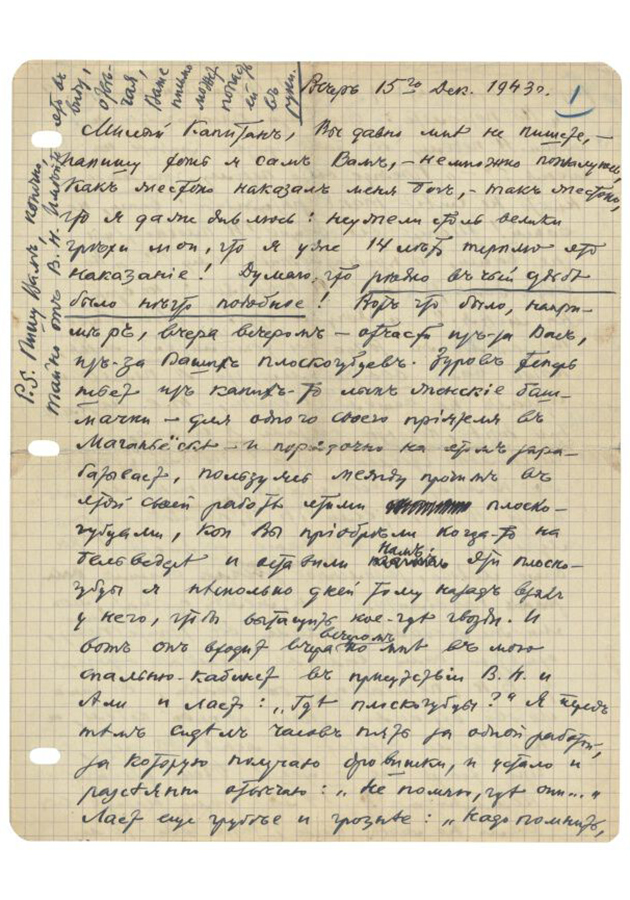 Вечеръ 15го Дек. 1943 г.
1
Милый Капитанъ, Вы давно мнѣ не пишете, –
напишу хоть я самъ Вамъ, – немножко пожалуюсь,
Какъ жестоко наказалъ меня Богъ, – такъ жестоко,
что я даже дивлюсь: неужели столь велики
грѣхи мои, что я уже 14 лѣтъ терплю это
наказаніе! Думаю, что рѣдко въ чьей судьбѣ
было нѣчто подобное! Вотъ что было, напри-
мѣръ, вчера вечеромъ – отчасти изъ-за Васъ,
изъ-за Вашихъ плоскогубцевъ. Зуровъ теперь
шьетъ изъ какихъ-то женскіе баш-
мачки – для одного своего пріятеля въ
и порядочно на этомъ зара-
батываетъ, пользуясь между прочимъ въ
этой своей работѣ этими плоско-
губцами, кои Вы пріобрѣли когда-то на
Бельведерѣ и оставили намъ. Эти плоско-
губцы я нѣсколько дней тому назадъ взялъ
у него, чтобы вытащить кое-гдѣ гвозди. И
вотъ онъ входитъ вчера вечеромъ ко мнѣ въ мою
спальню-кабинетъ въ присутствіи В. Н. и
Али и лаетъ: „Гдѣ плоскогубцы?“ Я передъ
тѣмъ сидѣлъ часовъ пять за одной работой,
за которую получаю гроши, и устало и
разсѣянно отвѣчаю: „Не помню, гдѣ они...“
Лаетъ еще грубѣе и грознѣе: „Надо помнить,
P.S. Пишу Вамъ, конечно,
тайно отъ В. Н. Имѣйте это въ
виду,
отвѣ-
чая,
Ваше
письмо
можетъ
попасть
ей
въ
руки.